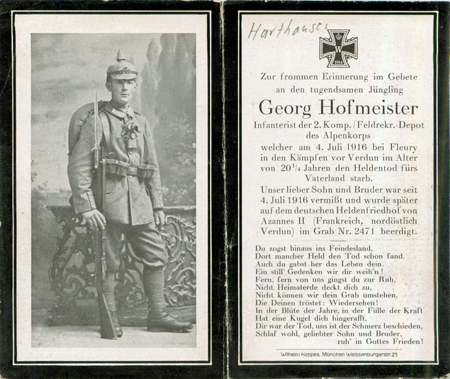 Harthausen
Zur frommen Erinnerung im Gebete
an den tugendsamen Jüngling
Georg Hofmeister
Infanterist der 2. Komp./Feldrekr.-Depot
des Alpenkorps
welcher am 4. Juli 1916 bei Fleury
in den Kämpfen vor Verdun im Alter
von 20¼ Jahren den Heldentod fürs
Vaterland starb.
Unser lieber Sohn und Bruder war seit
4. Juli 1916 vermißt und wurde später
auf dem deutschen Heldenfriedhof von
Azannes II (Frankreich, nordöstlich
Verdun) im Grab Nr. 2471 beerdigt.
Du zogst hinaus ins Feindesland,
Dort mancher Held den Tod schon fand.
Auch du gabst her das Leben dein.
Ein still' Gedenken wir dir weih'n!
Fern, fern von uns gingst du zur Ruh,
Nicht Heimaterde deckt dich zu,
Nicht können wir dein Grab umstehen,
Die Deinen tröstet: Wiedersehen!
In der Blüte der Jahre, in der Fülle der Kraft
Hat eine Kugel dich hingerafft,
Dir war der Tod, uns ist der Schmerz beschieden,
Schlaf wohl, geliebter Sohn und Bruder,
ruh' in Gottes Frieden!
Wilhelm Höppes, München Weissenburgerstr. 25